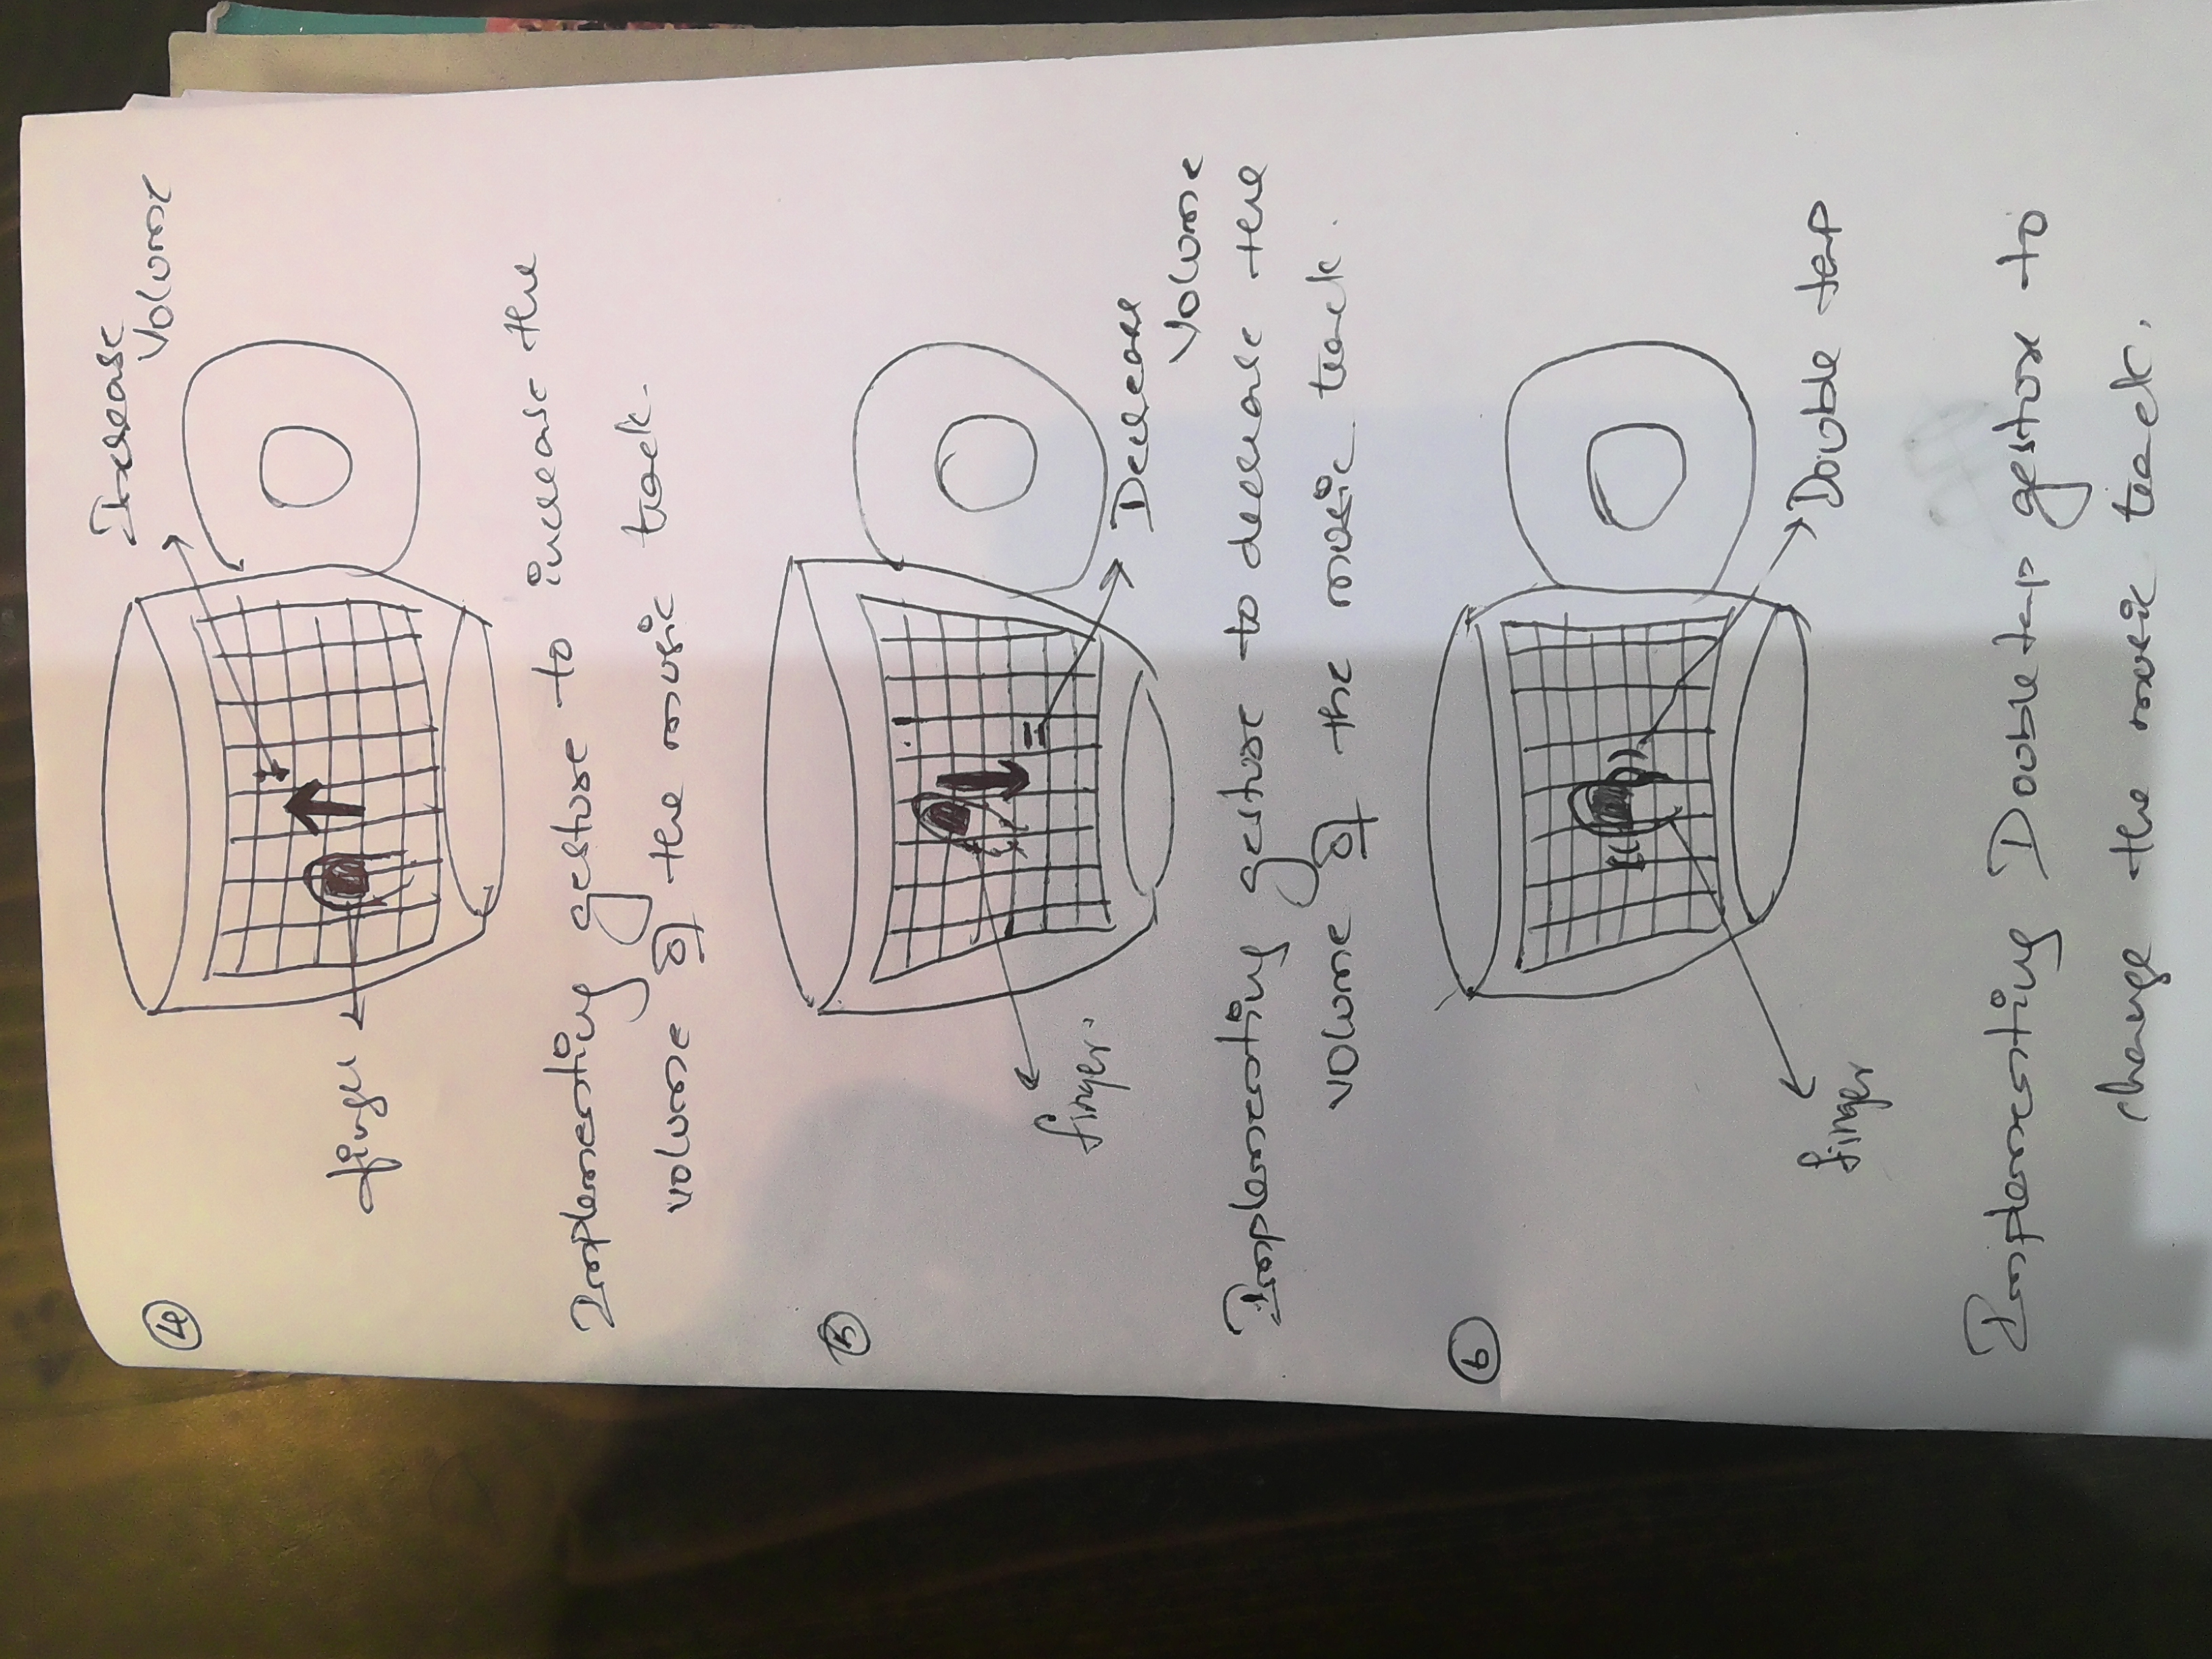 4
Increase
Volume
finger
Implementing gesture to increase the
volume of the music track.
5
finger.
Decrease
Volume
Implementing gesture to decrease the
volume of the music track.
6
finger
Double tap
Implementing Double tap gesture to
change the music track.